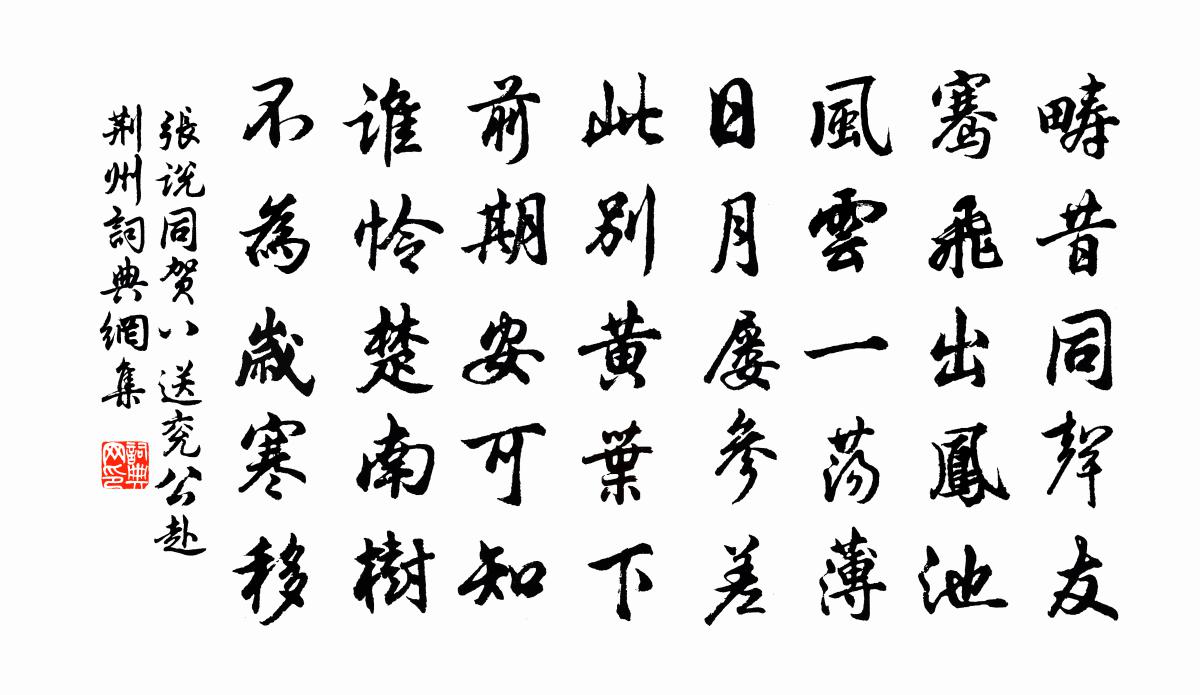 疇昔同聲友
騫飛出鳳池
風雲一蕩薄
日月屡參差
此別黃葉下
前期安可知
誰怜楚南樹
不為歲寒移
張說同贺八送兖公赴
荆州詞典網集
詞典网印